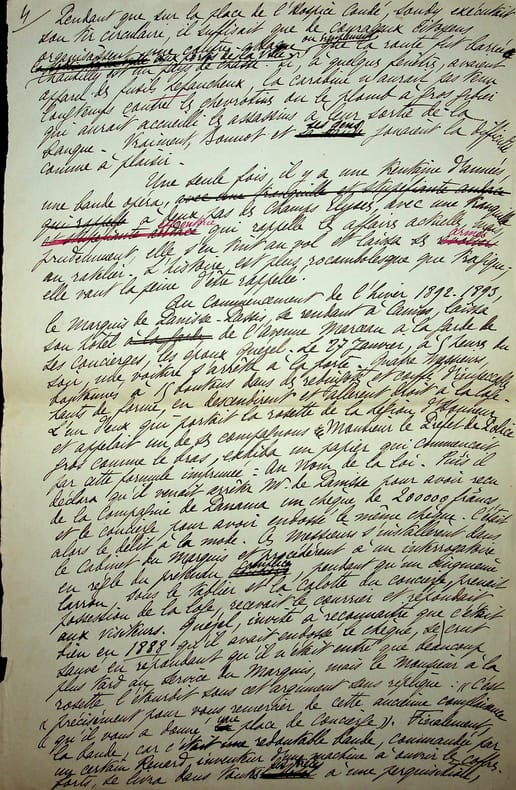 4
Pendant que sur la place de l'Hospice Condé, Soudy exécutait
son tir circulaire, il suffisait que de courageux citoyens
organisassent une contre-attaque ou simplement que la route fut barrée
Chantilly est un pays de chasse si, à quelques fenêtres, avaient
apparu des fusils Lefaucheux, la carabine n'aurait pas tenu
longtemps contre les chevrotines ou le plomb à gros gibier
qui aurait accueilli les assassins à leur sortie de la
banque. Vraiment, Bonnot et jouaient la difficulté
comme à plaisir.
Une seule fois, il y a une trentaine d'années,
une bande opéra,
à deux pas des Champs Elysées avec une tranquille
qui rappelle les affaires actuelles, mais
prudemment, elle s'en tint au vol et laissa ses armes
au ratelier. L'histoire est plus rocambolesque que tragique.
elle vaut la peine d'être rappelée.
Au commencement de l'hiver 1892-1893,
le marquis de Panisse-Passis, se rendant à Cannes, laissa
son hôtel de l'avenue Marceau à la garde de
ses concierges, les époux Quesel. Le 27 Janvier, à 5 heures du
soir, une voiture s'arrêta à la porte. Quatre Messieurs,
boutonnés à dans des redingotes et coiffés d'impeccables
hauts de forme, en descendirent et allèrent droit à la loge.
L'un d'eux qui portait la rosette de la Légion d'Honneur
et appelait un de ses compagnons « Monsieur le Préfet de Police
gros comme le bras, exhiba un papier qui commençait
par cette formule imprimée : Au Nom de la loi. Puis il
déclara qu'il venait arrêter Mr de Panisse pour avoir reçu
de la Compagnie de Panama un chèque de 200000 francs
et le concierge pour avoir endossé le même chèque. C'était
alors le délit à la mode. Ces messieurs s'installèrent dans
le cabinet du Marquis et procédèrent à un interrogatoire
en règle du prétendu complice pendant qu'un cinquième
larron, sous le tablier et la calotte du concierge, prenait
possession de la loge, recevait le courrier et répondait
aux visiteurs. Quesel, invité à reconnaître que c'était
bien en 1888 qu'il avait endossé le chèque, se crut
sauvé en répondant qu'il n'était entré que beaucoup
plus tard au service du Marquis, mais le monsieur à la
rosette l'étourdit sous cet argument sans réplique : « C'est
« précisément pour vous remercier de cette ancienne complaisance
« qu'il vous a donné une place de concierge ». Finalement,
la bande, car c'était une redoutable bande, commandée par
un certain Renard, inventeur d'une machine à ouvrir les coffres-
forts, se livra dans toutes à une perquisition,